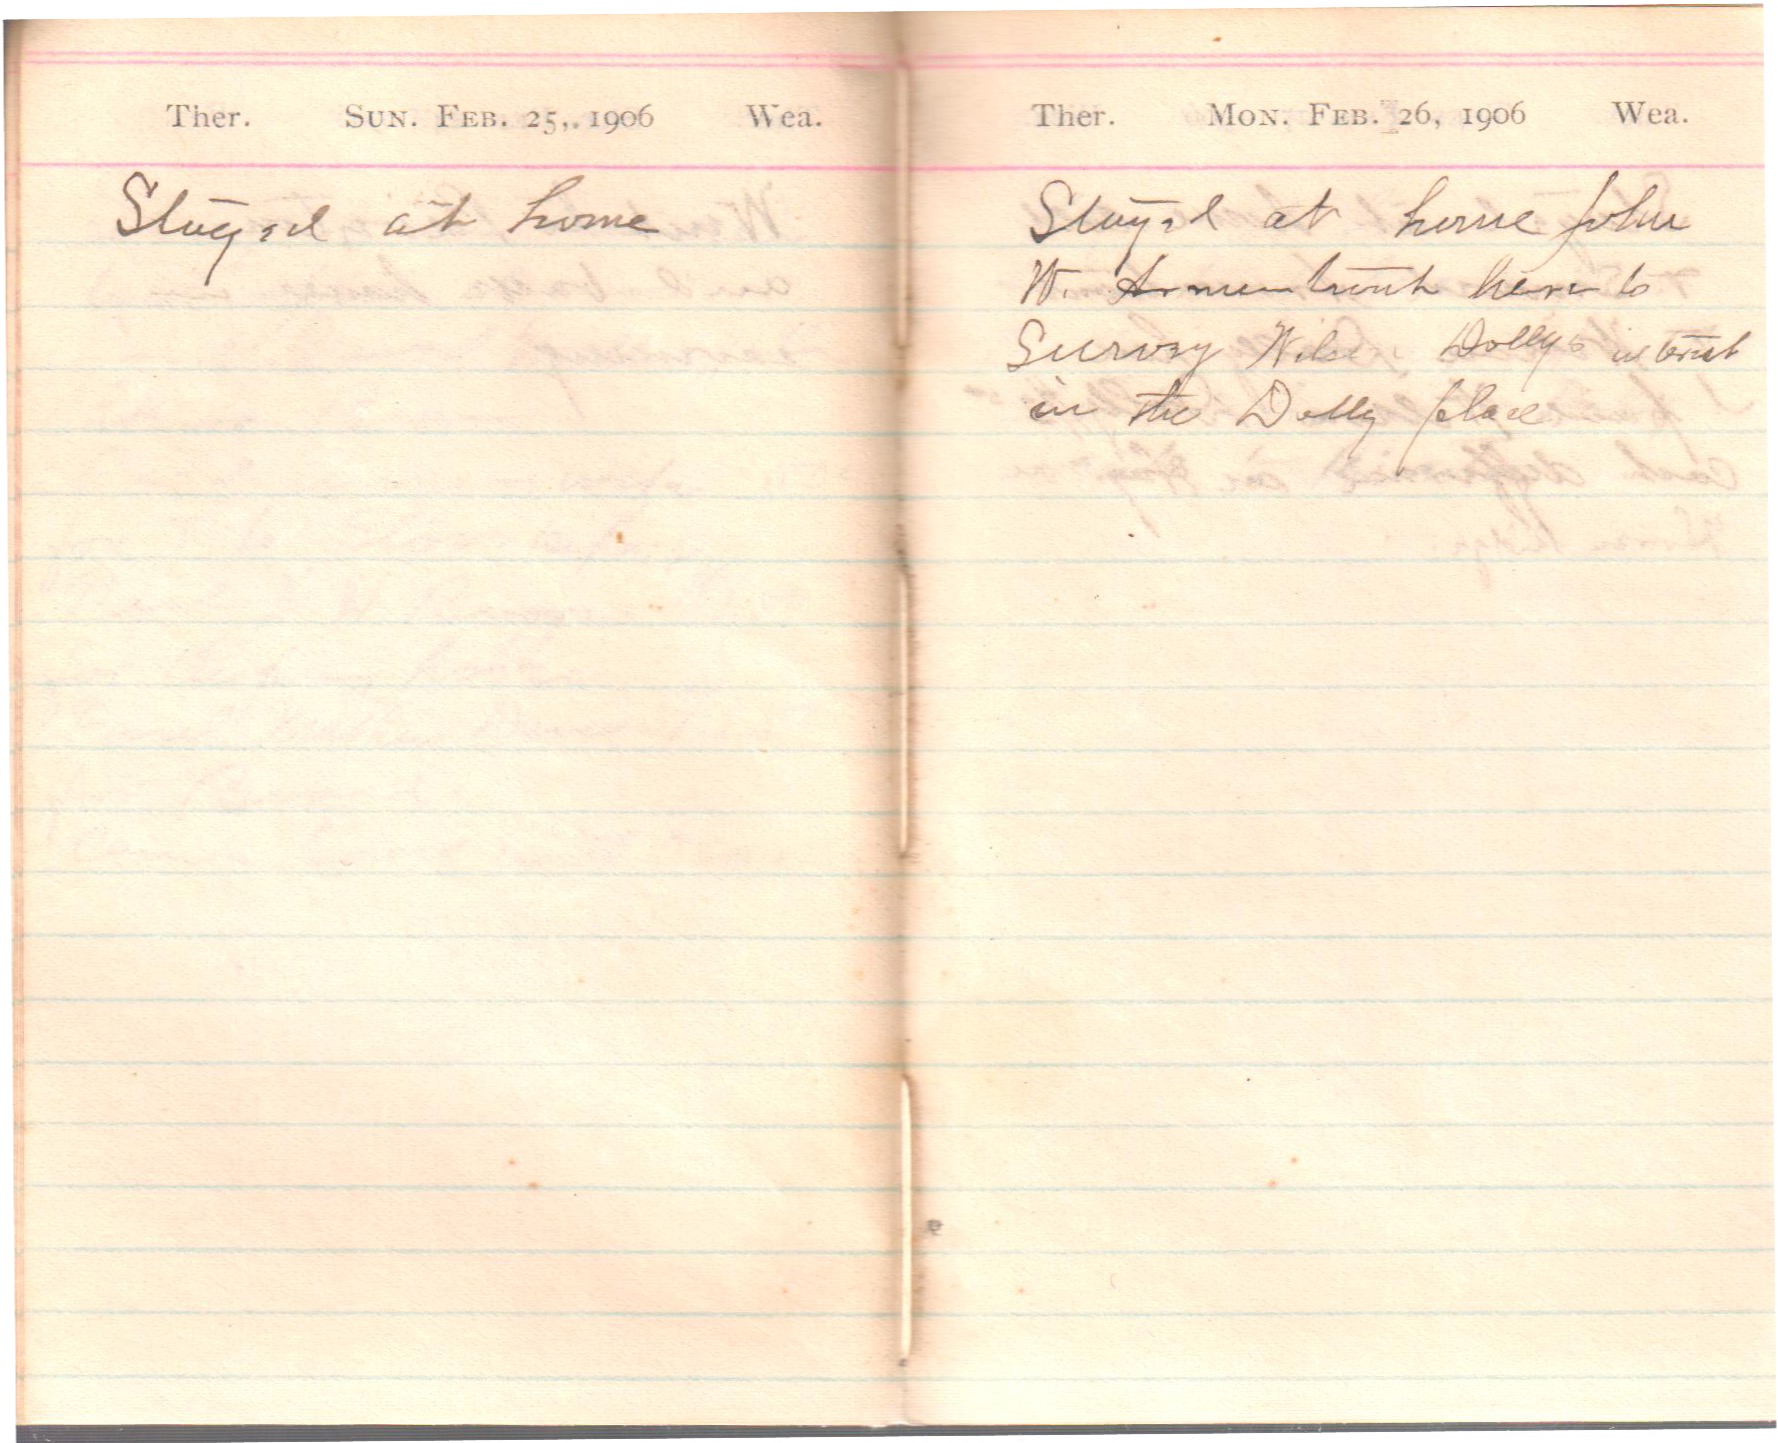 Ther. Sun. Feb. 25, 1906 Wea.
Stayed at home
Ther. Mon. Feb. 26, 1906 Wea.
Stayed at home John
W. Armentrout here to
Survey Wilson Dollys interest
in the Dolly place